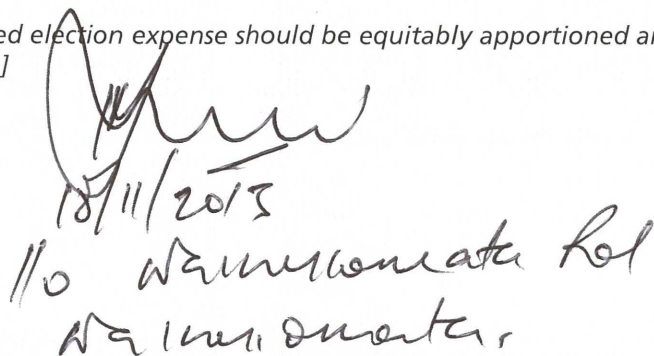 ed election expense should be equitably apportioned a
]
/11/2013
110 Wainuiomata Rd
Wainuiomata.